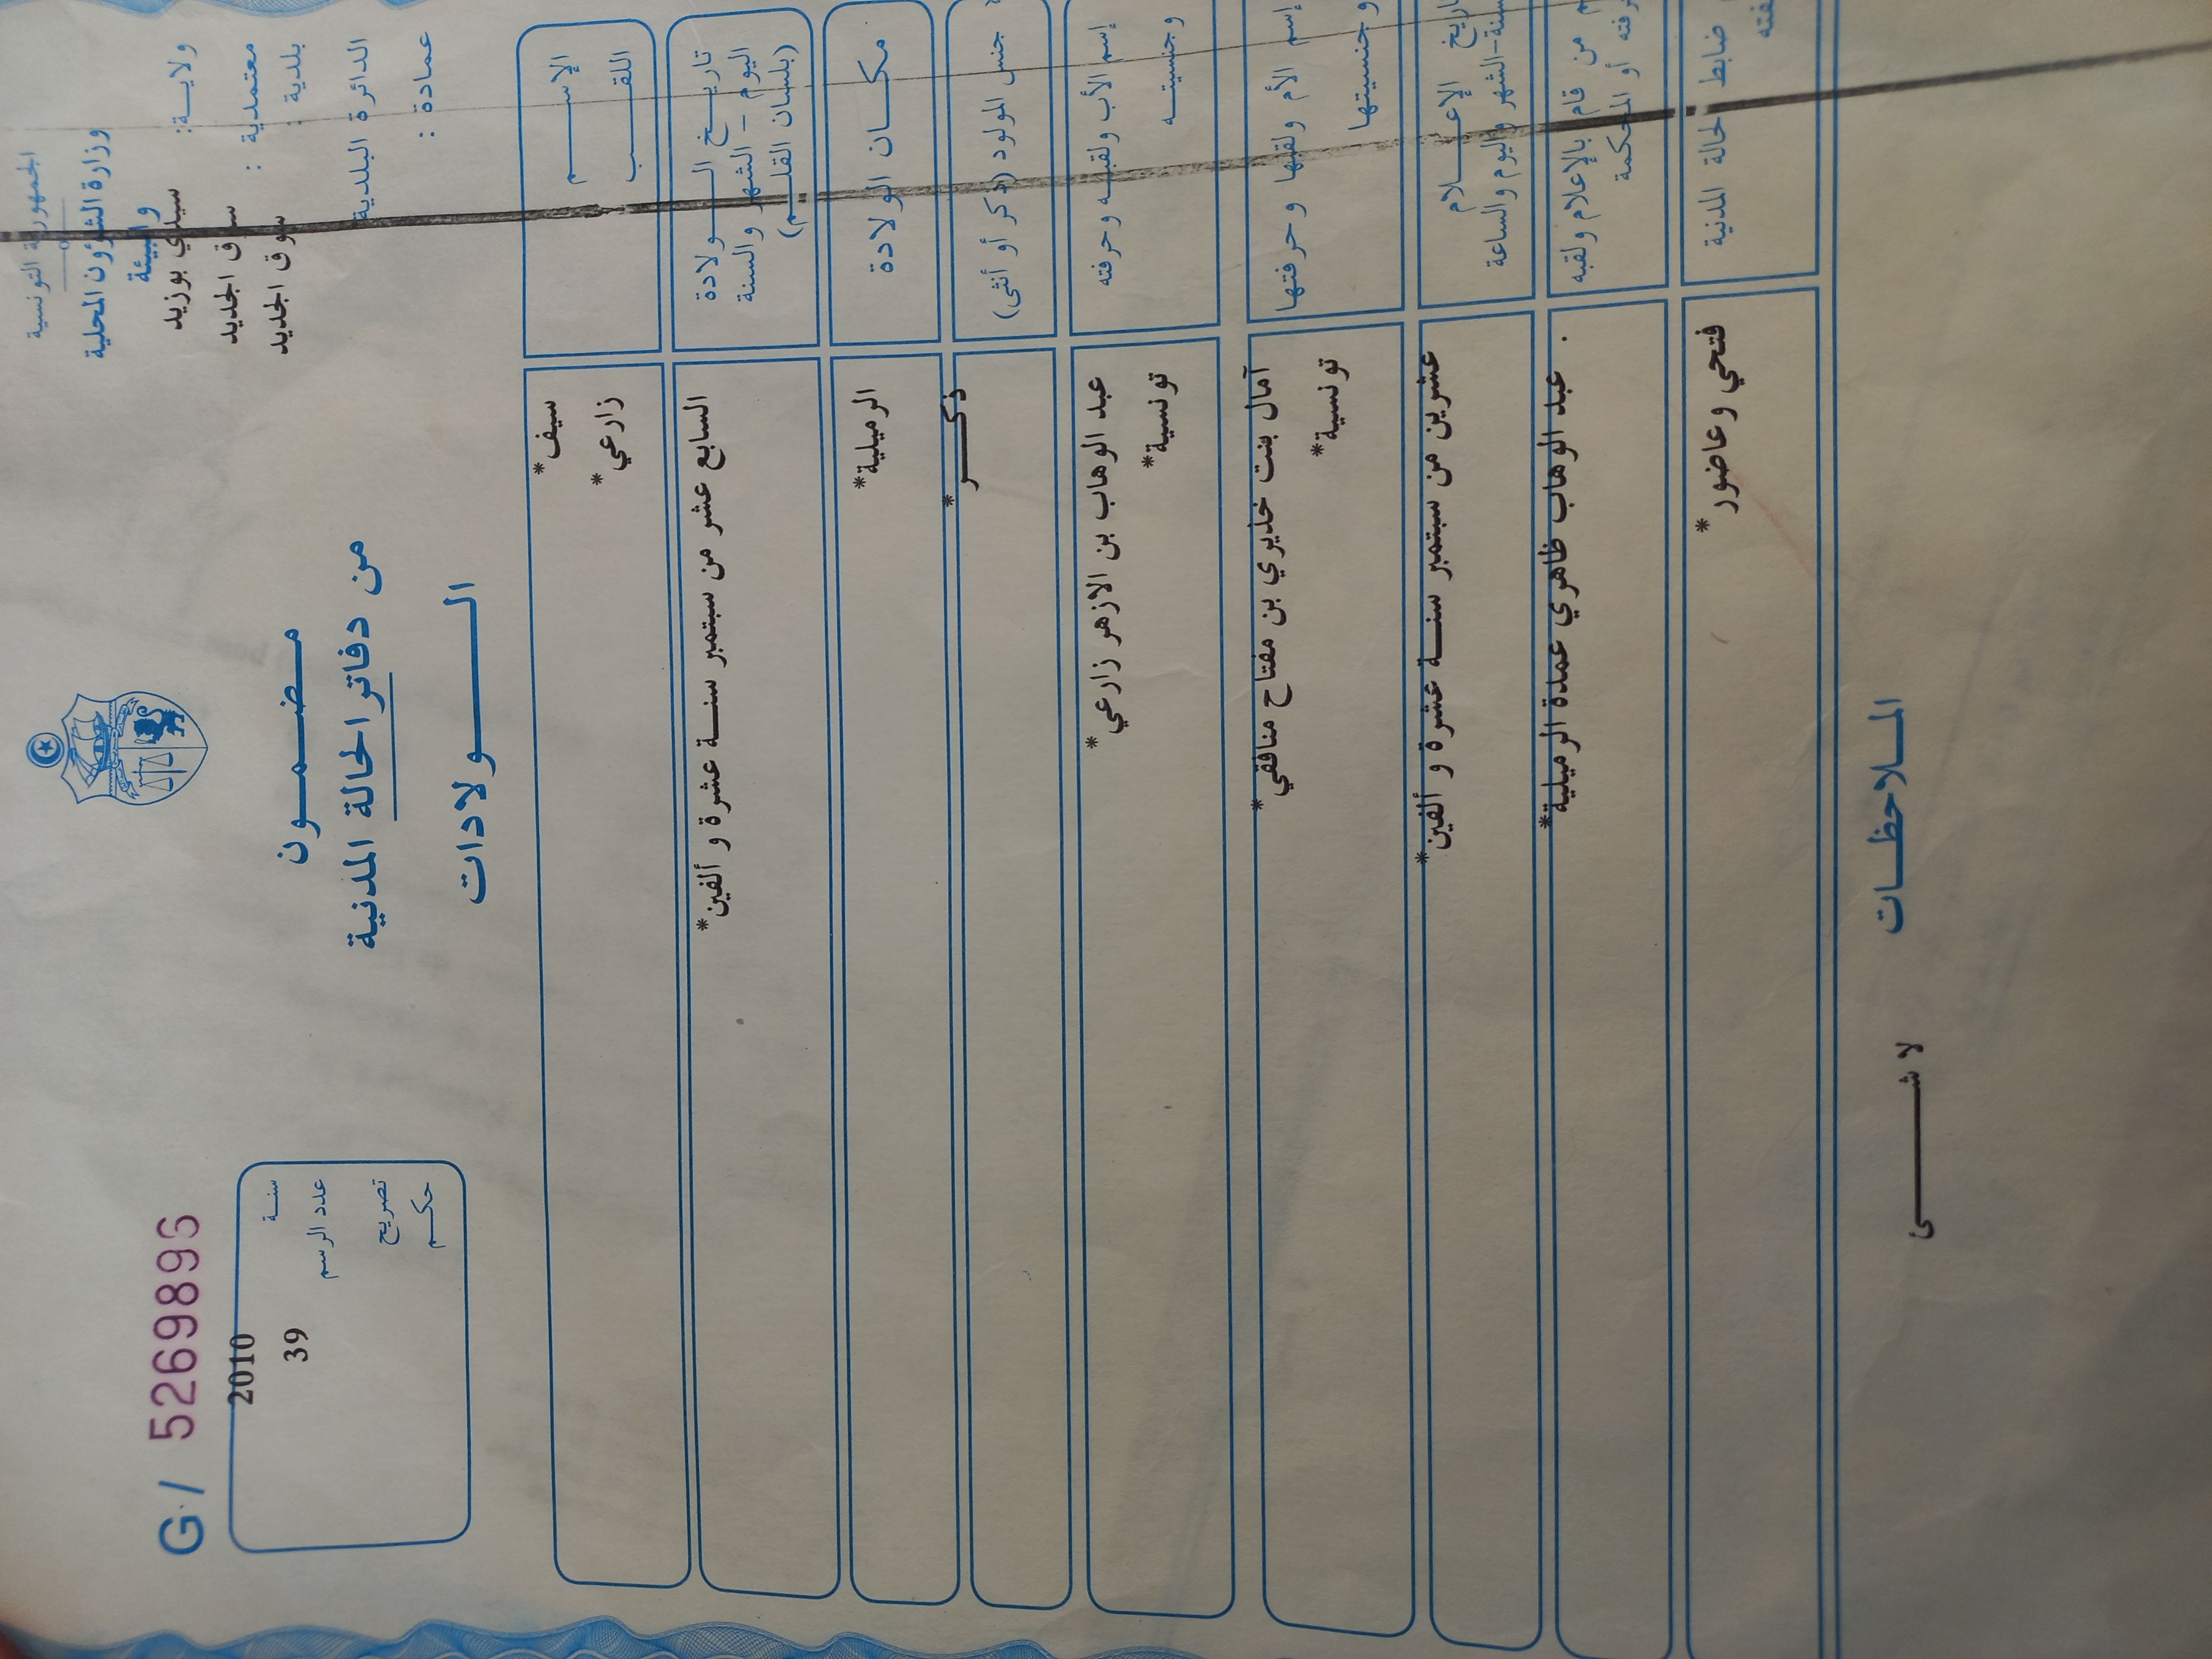 الجمهورية التونسية
وزارة الشؤون المحلية
والبيئة
ولايـــة: سيدي بوزيد
معتمدية : سوق الجديد
بلدية : سوق الجديد
الدائرة البلدية
عمادة :
G / 5269896
سنـة 2010
عدد الرسم 39
تصريح
حكـم
مـضـمـــون
من دفاتر الحالة المدنية
الـــــولادات
الإســــــم سيف*
اللقــــب زارعي*
تاريــخ الـــولادة السابع عشر من سبتمبر سنـــة عشرة و ألفين*
اليوم – الشهر والسنة
(بلسان القلـــم)
مكـــان الولادة الرميلية*
جنس المولود (ذكر أو أنثى) ذكــــر*
إسم الأب ولقبـــه وحرفته عبد الوهاب بن الازهر زارعي*
وجنسيتــه تونسية*
إسم الأم ولقبها وحرفتها آمال بنت خذيري بن مفتاح منافقي*
وجنسيتها تونسية*
تاريخ الإعـــلام عشرين من سبتمبر سنـــة عشرة و ألفين*
السنة-الشهر واليوم والساعة
من قام بالإعلام ولقبه عبد الوهاب ظاهري عمدة الرميلية*
حرفته أو المحكمة
ضابط الحالة المدنية فتحي وعاضور*
المــلاحظـــات
لا شـــــئ